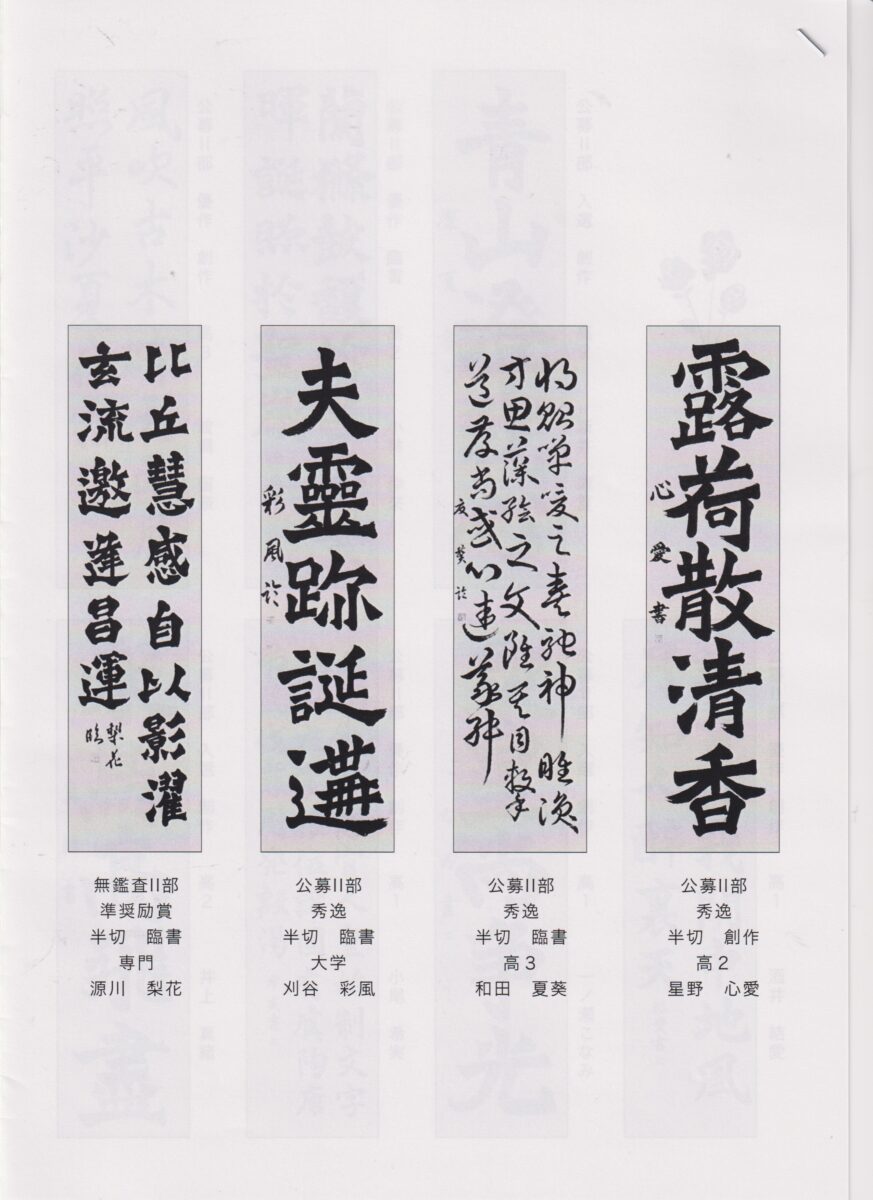 露荷散清香
心愛書
公募II部
秀逸
半切　創作
高2
星野　心愛
將貽嘽喛之奏馳神睢渙
方思藻繪之文雖其目擊
道存尚或心迷議舛
夏葵臨
公募II部
秀逸
半切　臨書
高3
和田　夏葵
夫靈跡誕遘
彩風臨
公募II部
秀逸
半切　臨書
大学
刈谷　彩風
比丘慧感自以影濯
玄流邀逢昌運
梨花
臨
無鑑査II部
準奨励賞
半切　臨書
専門
源川　梨花